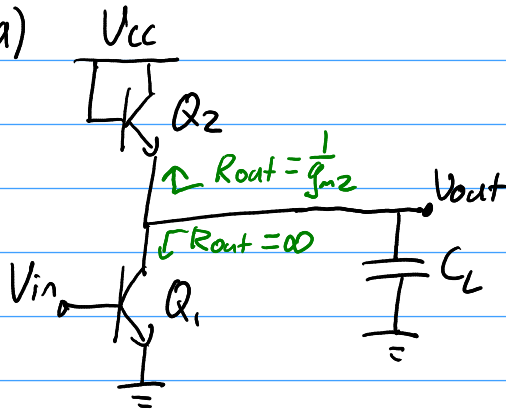 a)
Vcc
Q2
Rout = 1/gm2
Vout
Rout = ∞
Vin
Q1
CL